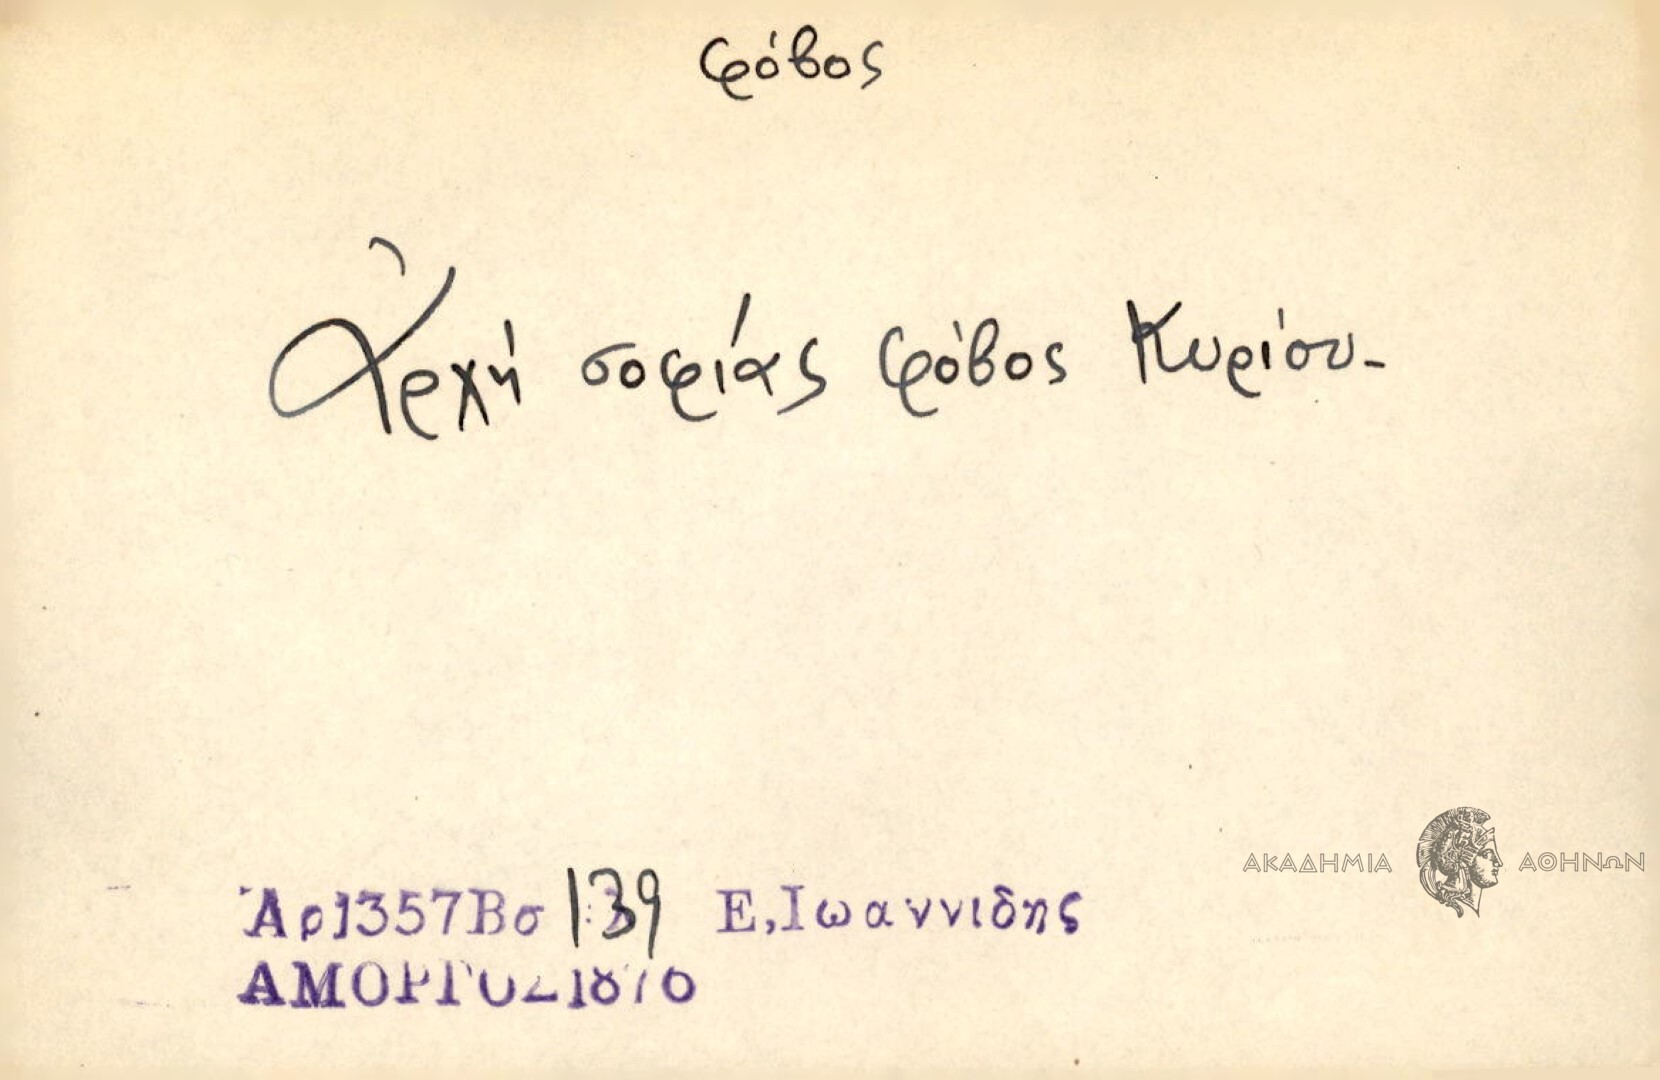 φόβος
Ἀρχή σοφίας φόβος Κυρίου-
ΑΚΑΔΗΜΙΑ ΑΘΗΝΩΝ
Ἀρ1357Βσ 139 Ε,Ιωαννιδης
ΑΜΟΡΓΟΣ1876